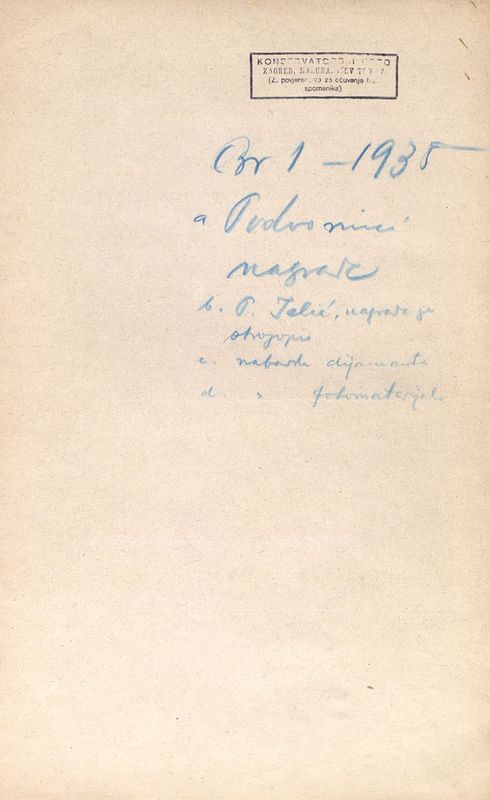 ZAGREB,
(Z. povjerenstvo za očuvanje
spomenika)
Br 1 – 1935
a Podvornici
nagrade
b. P. Jelić, nagrada za
strojopis
c. nabavka dijamanta
d. " fotomaterijala